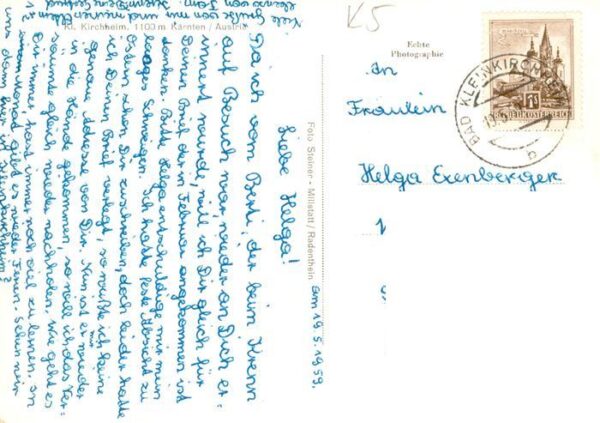 Kl. Kirchheim, 1103 m Kärnten / Austria
K5
Echte
Photographie
REPUBLIK ÖSTERREICH
BAD KLEINKIRCHHEIM
b
An
Fräulein
Helga Exenberger
Foto Steiner • Millstatt / Radenthein
am 19.5.1959.
Liebe Helga!
Da ich vom Berti, der beim Krenn
auf Besuch war wieder an Dich er-
innert wurde, will ich Dir gleich für
Deinen Brief der im Februar angekommen ist
danken. Bitte Helga entschuldige mir mein
langes Schweigen. Ich hatte feste Absicht zu
Ostern schon Dir zu schreiben, doch leider hatte
ich Deinen Brief verlegt, so wußte ich keine
genaue Adresse von Dir. Nun ist er mir wieder
in die Hände gekommen, so will ich das Ver-
säumte gleich wieder nachholen. Wie geht es
Dir immer
hast immer noch viel zu lernen, in
einem Monat gibt es wieder Ferien. Sehen wir
uns dann hier in Kleinkirchheim?
Viele
Grüße von mir und meinen